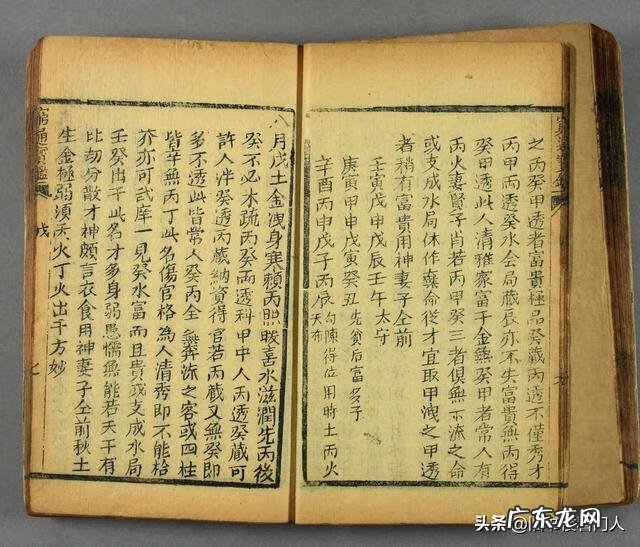 之丙癸甲透者富貴極品癸藏丙透不僅秀才
丙甲兩透癸水會局藏辰亦不失富貴無丙得
癸甲透此人清雅家富千金無癸甲者常人有
丙火妻賢子肖若丙甲癸三者俱無下流之命
或支成水局休作棄命從才宜取甲洩之甲透
者稍有富貴用神妻子仝前
壬寅戊申戊辰壬午太守
庚寅甲申戊寅癸丑先貧后富多子
辛酉丙申戊子丙辰勾陳得位用時土丙火
天布
八月戊土金洩身寒賴丙照暖喜水滋潤先丙後
癸不必木疏丙癸兩透科甲中人丙透癸藏可
許入泮癸透丙藏納資得官若丙藏又無癸即
多不透此皆常人癸丙全無奔流之客或四柱
皆辛無丙丁此名傷官格為人清秀即不能恰
芥亦可武庠一見癸水富而且貴或支成水局
壬癸出干此名才多身弱愚懦無能若天干有
比劫分散才神頗言衣食用神妻子仝前秋土
生金極弱須丙火丁火出干方妙
窮通寶鑑
戊
七
头条
广东龙网